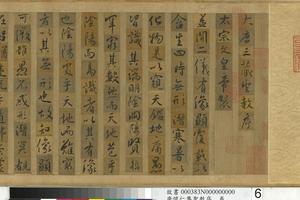 大唐三藏聖教序
太宗文皇帝製
蓋聞二儀有像顯覆載以
含生四時無形潛寒暑以
化物是以窺天鑑地庸愚
皆識其端明陰洞陽賢哲
罕窮其數然而天地苞乎
陰陽而易識者以其有像
也陰陽處乎天地而難窮
者以其無形也故知像顯
可徵雖愚不惑形潛莫覩
故書000383N000000000
6